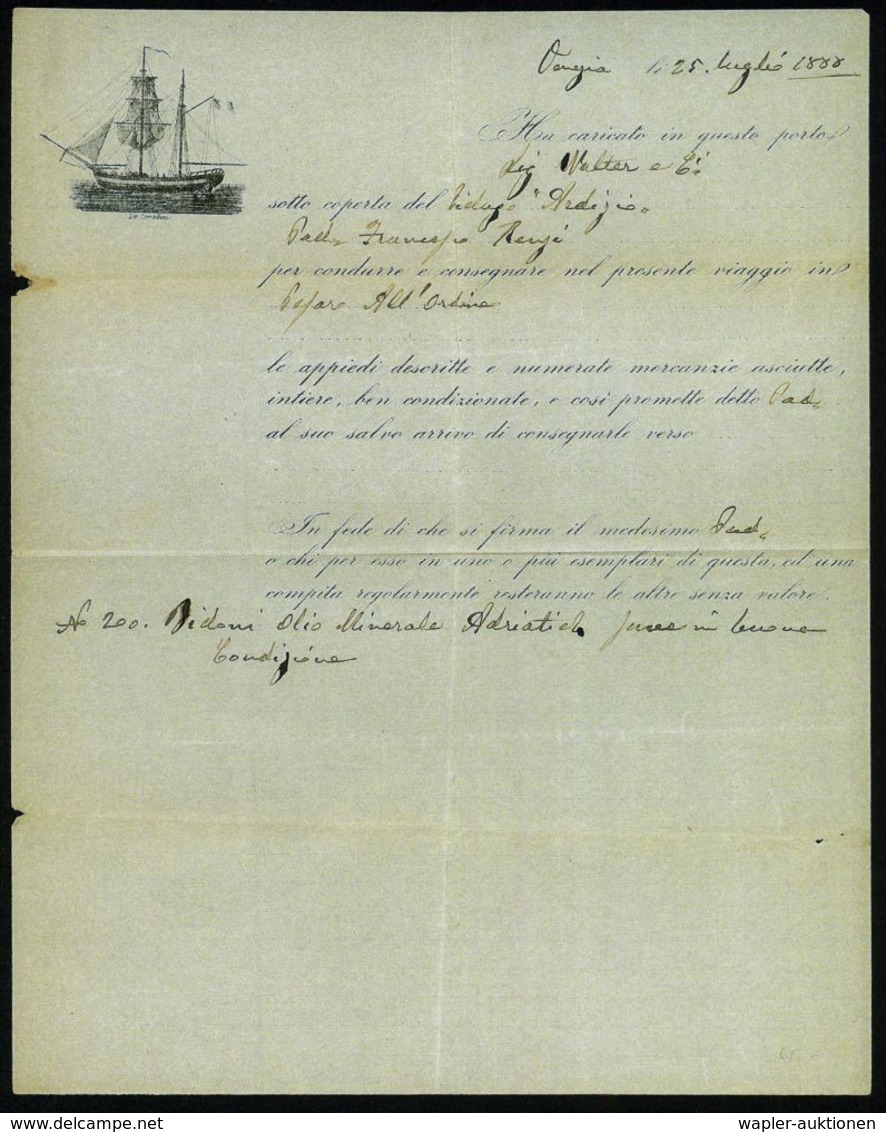 li 25. luglio 1888
Ha caricato in questo porto
Sig Walter e C.
sotto coperta del "Ardizio"
Francesco Renzi
per condurre e consegnare nel presente viaggio in
Pesaro All'Ordine
le appiedi descritte e numerate mercanzie asciutte,
intiere, ben condizionate, e così promette detto Pad.
al suo salvo arrivo di consegnarle verso
In fede di che si firma il medesimo Pad.
o chi per esso in uno o più esemplari di questa, ed una
compita regolarmente resteranno le altre senza valore.
No 200. Bidoni Olio Minerale in buona
Condizione
www.delcampe.net
wapler-auktionen